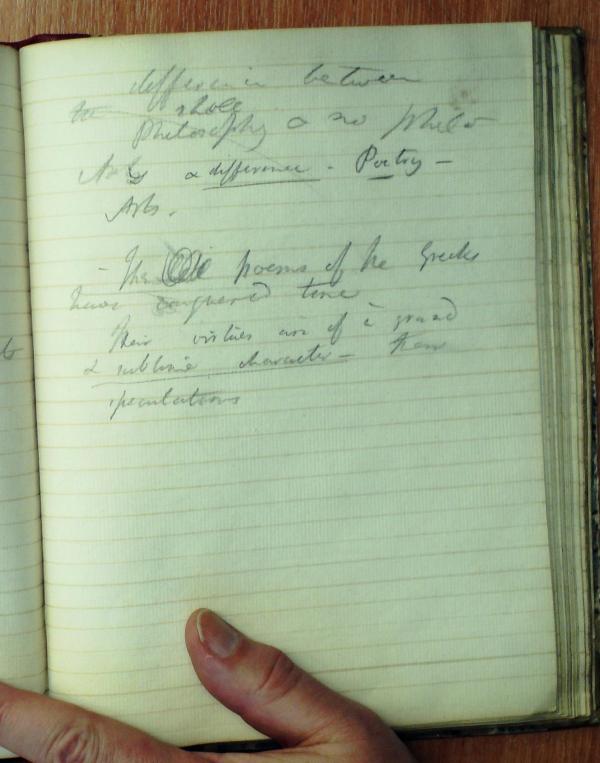 difference between
the whole
Philosophy & no Philo
Arts a difference. Poetry –
Arts.
– The poems of the Greeks
have conquered time
Their virtues are of a grand
& sublime character – their
speculations
to